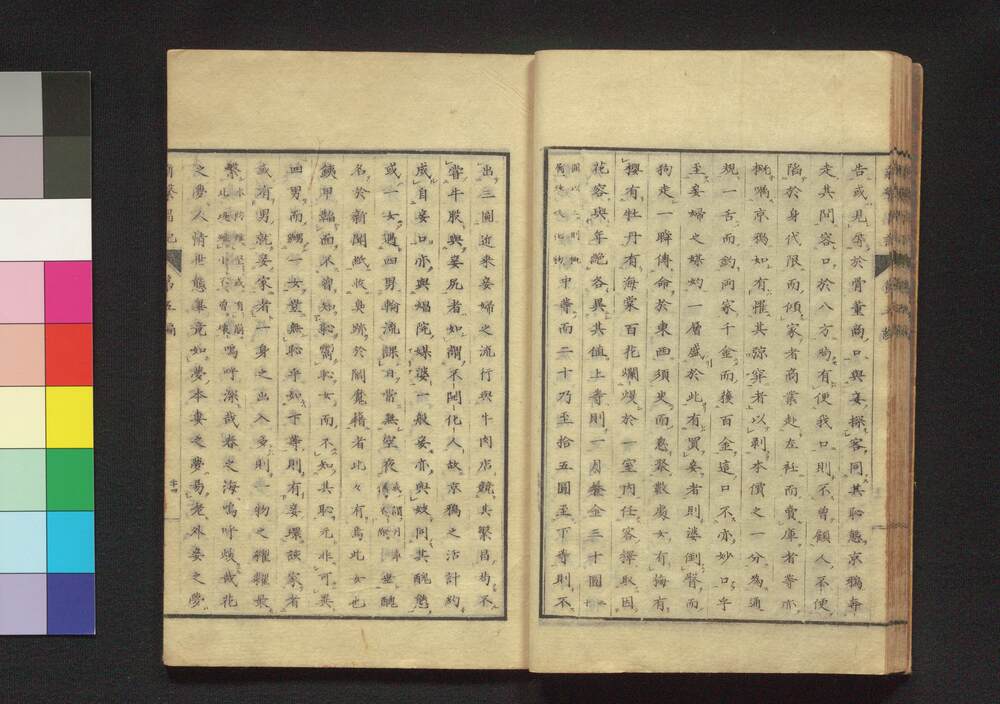 告或見于於骨董商口與妾探客同其恥態京鴉每
走其間容口於八方苟有便我口則不曾顧人不便
陷於身代限而傾家者商業赴左社而賣庫者寄亦
概嗚京鴉如有罹其弶穽者以剥本價之一分為通
規一舌而約兩家千金而獲百金這口不亦妙口乎
至妾婦之媒妁一層盛於此有買妾者則婆倒腎而
狗走一聯傳命於東西須臾而悉聚數處女有梅有
櫻有牡丹有海棠百花爛熳於一室内任客擇取因
花容與年齡各異其値上等則一月養金三十圓
中等而二十乃至拾五圓至下等則不
出三圓近來妾婦之流行與牛肉店競其繁昌苟不
嘗牛股與妾尻者如謂不開化人故京鴉之活計約
成自妾口亦與娼院媒婆一般妾亦與妓同其醜態
或一女遇四男輪流課日當無空夜 坐醜
名於新聞紙收臭跡於閻魔籍者比々有焉此女也
鐵甲鞱面不曾知恥嚮私女而不知其恥元非可異
四男而嬲一女豈無恥乎如下等則有妾環該家者
或有男就妾家者一身之出入多則一物之糶糴最
繁 嗚呼深哉春之海嗚呼嬈哉花
之夢人情世態畢竟如夢本妻之夢易老外妾之夢
新繁昌記 第五編